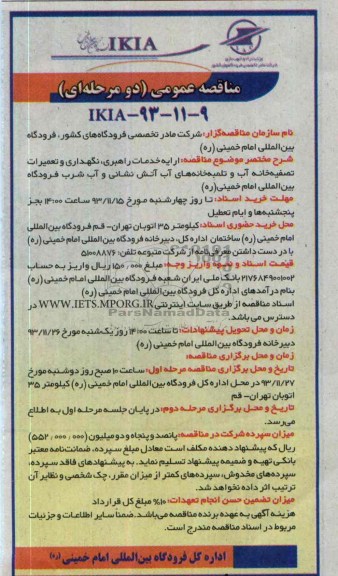 IKIA
مناقصه عمومی (دو مرحله‌ای)
IKIA-۹۳-۱۱-۹
نام سازمان مناقصه‌گزار: شرکت مادر تخصصی فرودگاه‌های کشور، فرودگاه
بین‌المللی امام خمینی (ره)
شرح مختصر موضوع مناقصه: ارایه خدمات راهبری، نگهداری و تعمیرات
تصفیه‌خانه آب و تلمبه‌خانه‌های آب آتش نشانی و آب شرب فرودگاه
بین‌المللی امام خمینی (ره)
مهلت خرید اسناد: تا روز چهارشنبه مورخ ۹۳/۱۱/۱۵ ساعت ۱۴:۰۰ بجز
پنجشنبه‌ها و ایام تعطیل
محل خرید حضوری اسناد: کیلومتر ۳۵ اتوبان تهران- قم فرودگاه بین‌المللی
امام خمینی (ره) ساختمان اداره کل، دبیرخانه فرودگاه بین‌المللی امام خمینی (ره)
با در دست داشتن معرفی‌نامه از شرکت متبوعه تلفن: ۵۱۰۰۸۸۷۶
قیمت اسناد و نحوه واریز وجه: مبلغ ۱۵۰٫۰۰۰ ریال واریز به حساب
۲۱۷۶۸۴۹۰۰۱۰۰۲ بانک ملی ایران شعبه فرودگاه بین‌المللی امام خمینی (ره)
بنام درآمدهای اداره کل فرودگاه بین‌المللی امام خمینی (ره)
اسناد مناقصه از طریق سایت اینترنتی WWW.IETS.MPORG.IR در
دسترس می‌باشد.
ParsNamadData
زمان و محل تحویل پیشنهادات: تا ساعت ۱۴:۰۰ روز یک‌شنبه مورخ ۹۳/۱۱/۲۶
دبیرخانه فرودگاه بین‌المللی امام خمینی (ره)
زمان و محل برگزاری مناقصه:
تاریخ و محل برگزاری مناقصه مرحله اول: ساعت ۱۰ صبح روز دوشنبه مورخ
۹۳/۱۱/۲۷ در محل اداره کل فرودگاه بین‌المللی امام خمینی (ره) کیلومتر ۳۵
اتوبان تهران- قم
تاریخ و محل برگزاری مرحله دوم: در پایان جلسه مرحله اول به اطلاع
می‌رسد.
میزان سپرده شرکت در مناقصه: پانصد و پنجاه و دو میلیون (۵۵۲٫۰۰۰٫۰۰۰)
ریال که پیشنهاد دهنده مکلف است معادل مبلغ سپرده، ضمانت‌نامه معتبر
بانکی تهیه و ضمیمه پیشنهاد تسلیم نماید. به پیشنهادهای فاقد سپرده،
سپرده‌های مخدوش، سپرده‌های کمتر از میزان مقرر، چک شخصی و نظایر آن
ترتیب اثر داده نخواهد شد.
میزان تضمین حسن انجام تعهدات: ۱۰% مبلغ کل قرارداد
هزینه آگهی به عهده برنده مناقصه می‌باشد. ضمنا سایر اطلاعات و جزییات
مربوط در اسناد مناقصه مندرج است.
اداره کل فرودگاه بین‌المللی امام خمینی (ره)